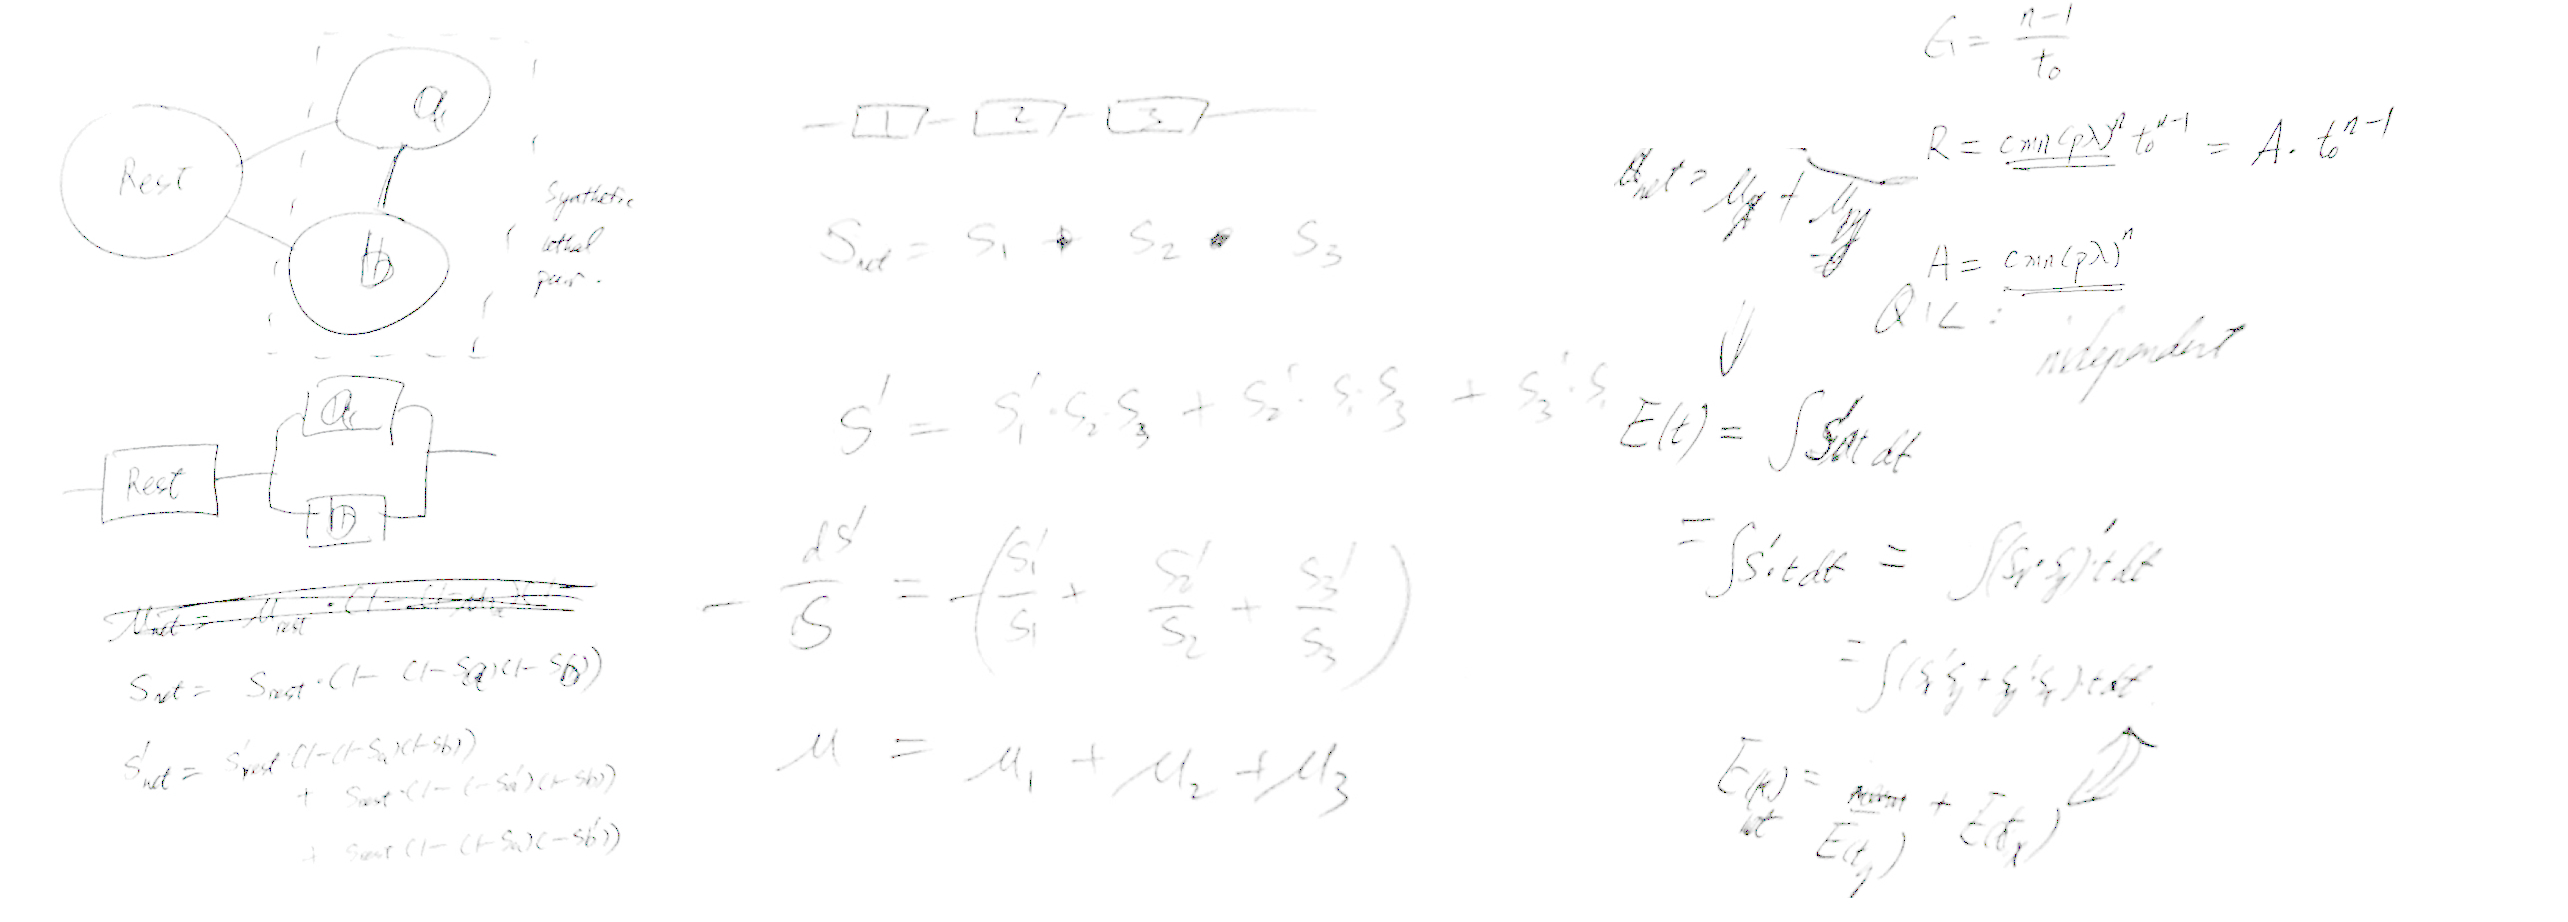 a
Rest
b
Synthetic
lethal
pair.
a
Rest
b
μnet = μrest · (1 -
Snet = Srest · (1 - (1 - Sa)(1 - Sb))
S'net = S'rest · (1 - (1 - Sa)(1 - Sb))
+ Srest · (1 - (-Sa')(1 - Sb))
+ Srest (1 - (1 - Sa)(-Sb'))
1 2 3
Snet = S1 • S2 • S3
S' = S1' · S2 · S3 + S2' · S1 · S3 + S3' · S1
- dS' / S = - ( S1' / S1 + S2' / S2 + S3' / S3 )
μ = μ1 + μ2 + μ3
G = n-1 / t0
R = cmn(pλ)^n t0^n-1 = A · t0^n-1
μnet = μx + μy
A = cmn(pλ)^n
independent
E(t) = ∫ S' dt
= ∫ S' · t dt = ∫ (Sx · Sy)' t dt
= ∫ (Sx' Sy + Sy' Sx) · t dt
E(t)net = E(ty) + E(tx)